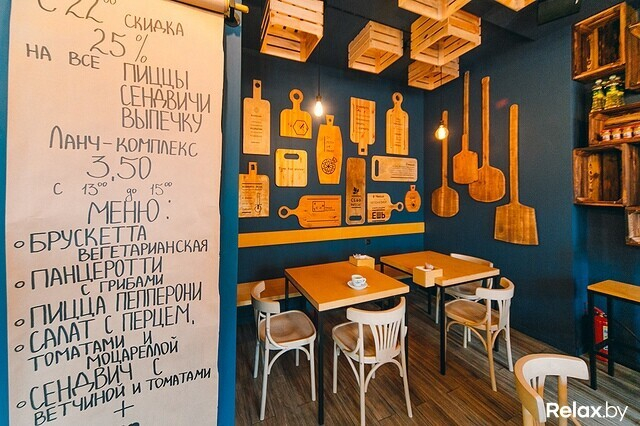 С 22⁰⁰ СКИДКА
25%
НА ВСЕ ПИЦЦЫ
СЕНДВИЧИ
ВЫПЕЧКУ
ЛАНЧ-КОМПЛЕКС
3,50
С 13⁰⁰ ДО 15⁰⁰
МЕНЮ:
• БРУСКЕТТА
ВЕГЕТАРИАНСКАЯ
• ПАНЦЕРОТТИ
С ГРИБАМИ
• ПИЦЦА ПЕППЕРОНИ
• САЛАТ С ПЕРЦЕМ,
ТОМАТАМИ И
МОЦАРЕЛЛОЙ
• СЕНДВИЧ С
ВЕТЧИНОЙ И ТОМАТАМИ
+
ЕШЬ
Relax.by